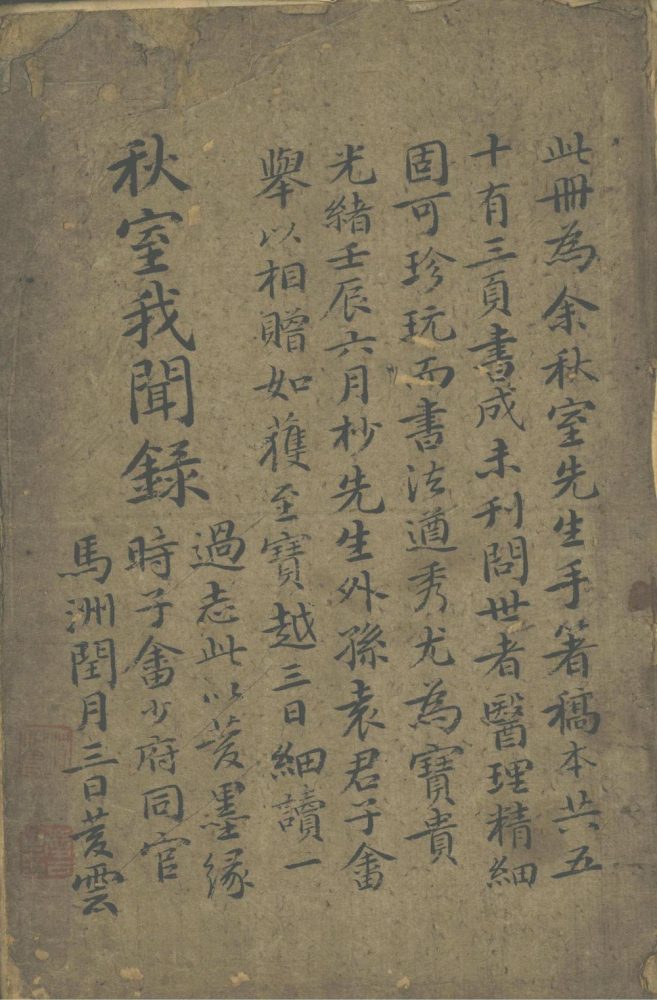 此冊為余秋室先生手箸稿本共五
十有三頁書成未刊問世者醫理精細
固可珍玩而書法遒秀尤為寶貴
光緒壬辰六月杪先生外孫袁君子畬
舉以相贈如獲至寶越三日細讀一
過志此以誌墨緣
秋室我聞錄
時子畬少府同官
馬洲閏月三日雲